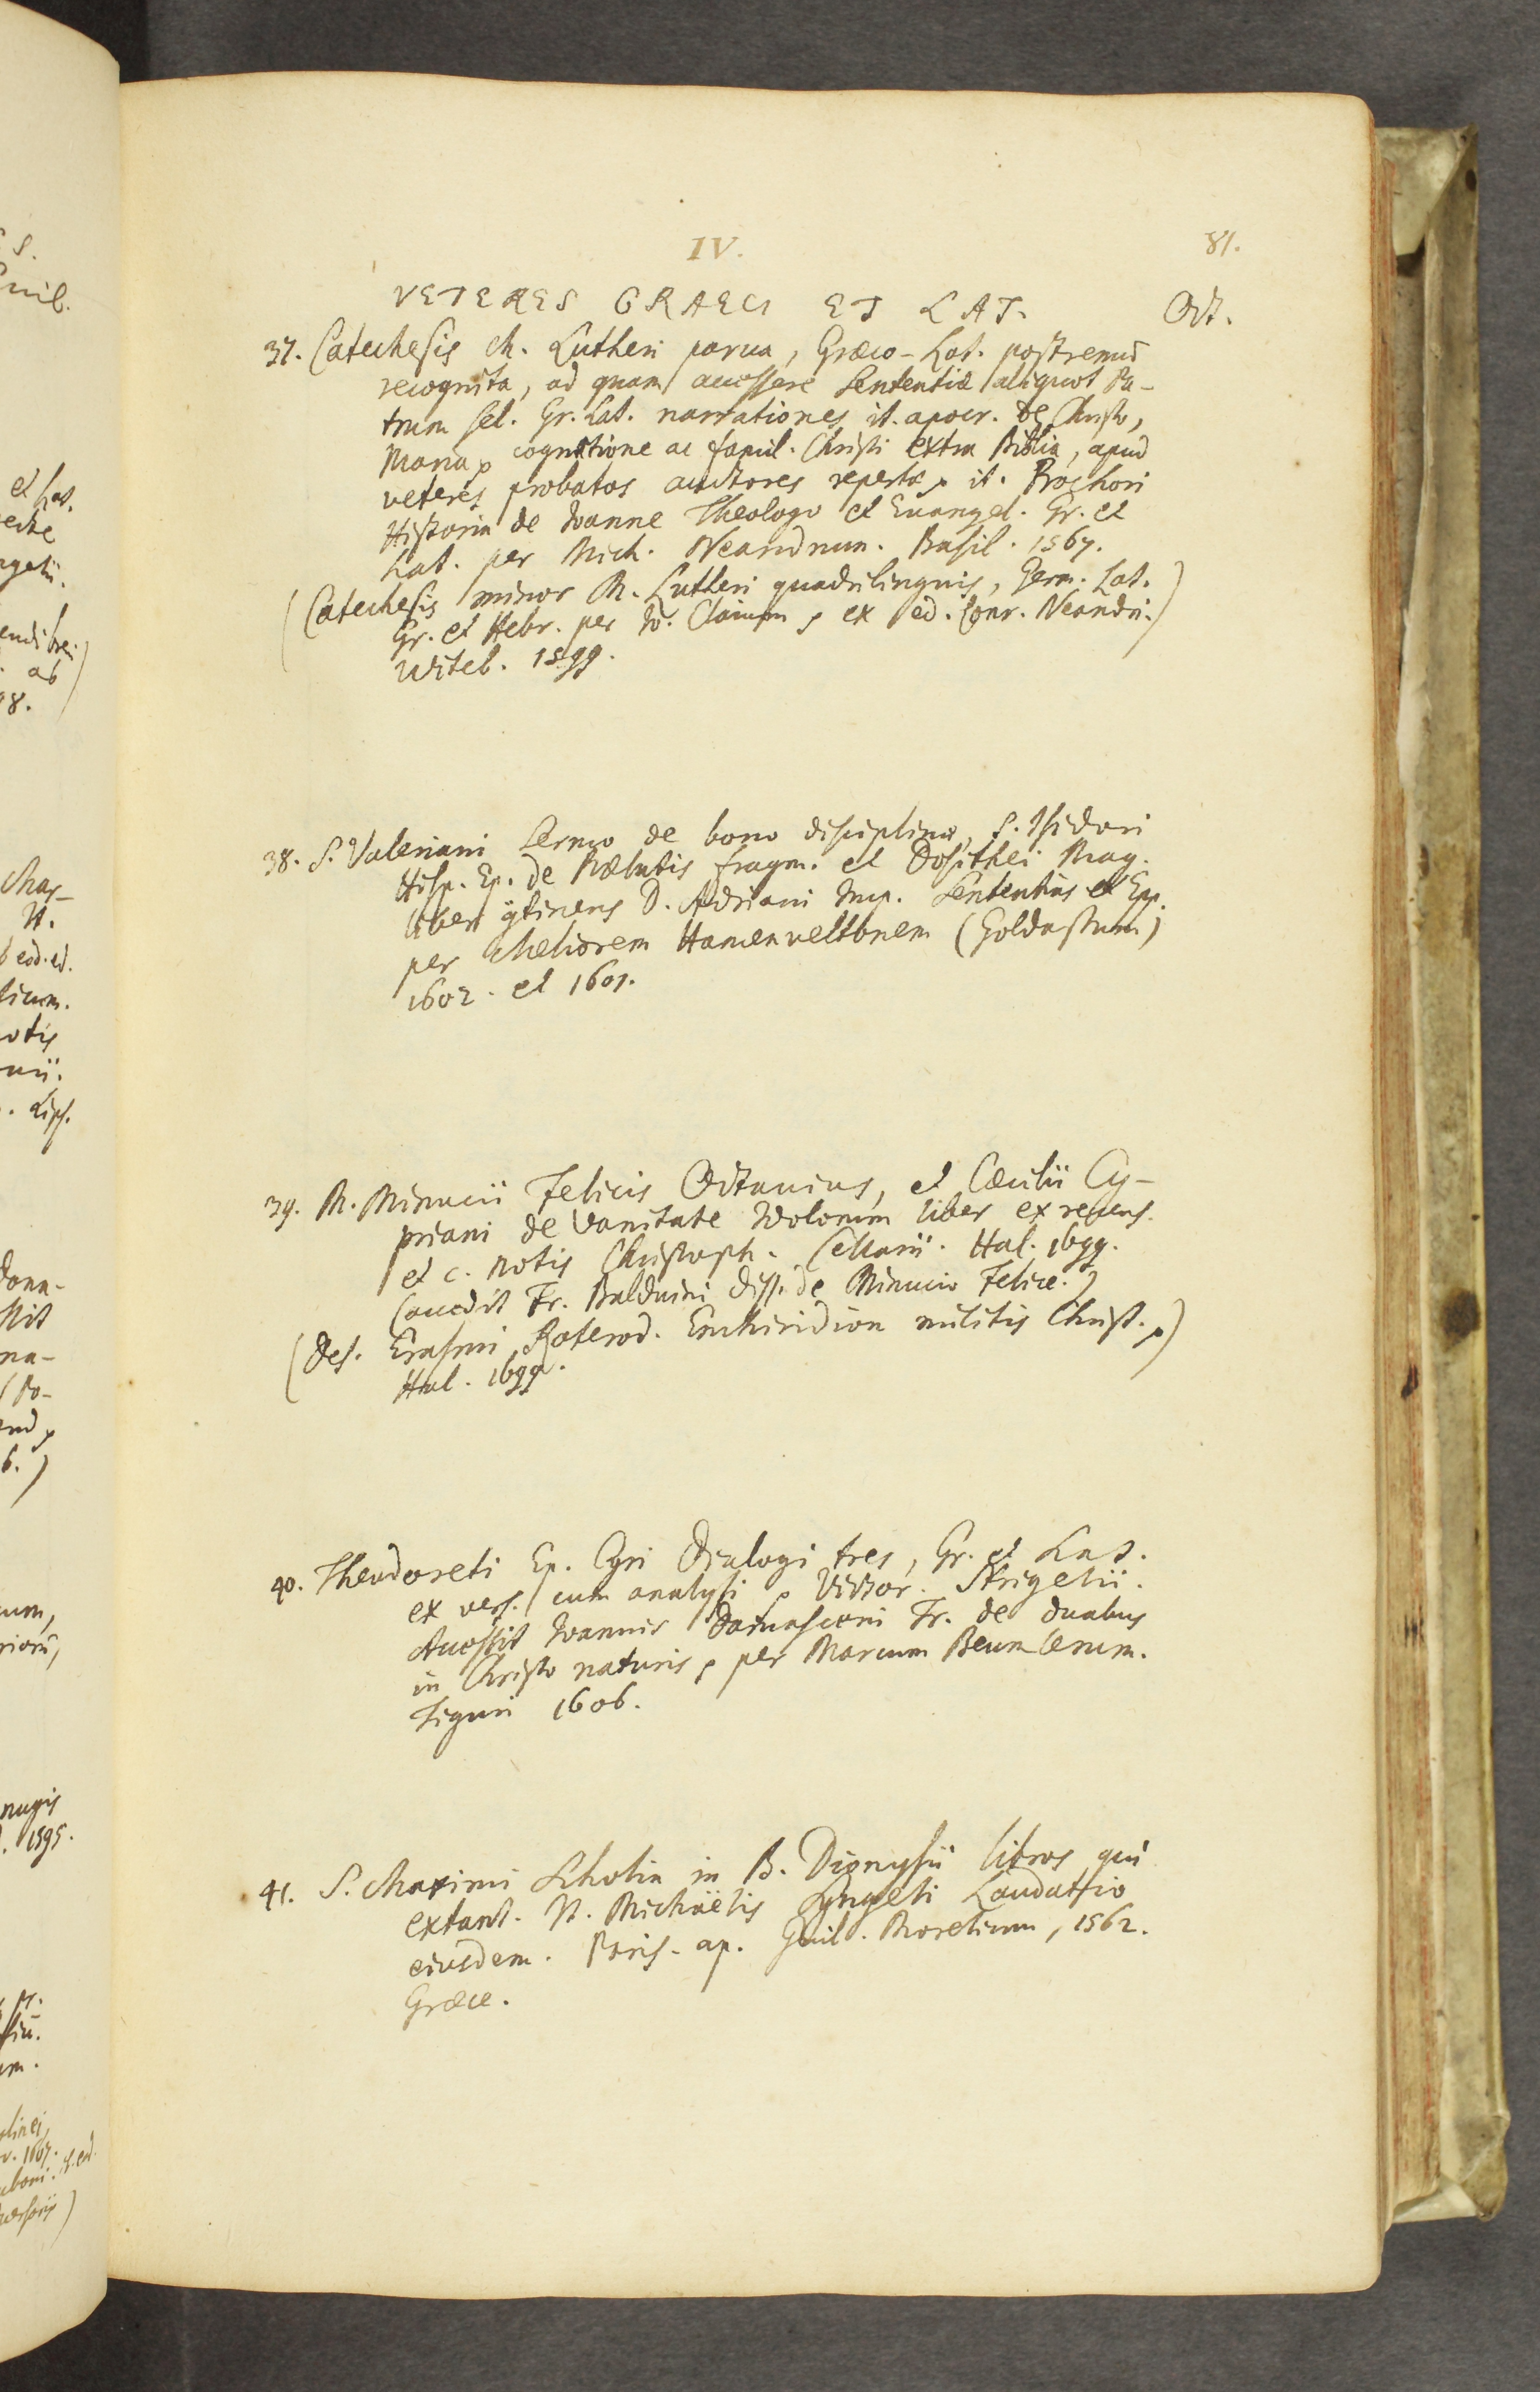 IV.
81.
VETERES GRAECI ET LAT.
Oct.
37. Catechesis M. Lutheri parua, Græco-Lat. postremùm
recognita, ad quam accessere Sententiæ aliquot Pa-
trum sel. Gr. Lat. narrationes it. apocr. de Christo,
Maria, cognatione ac famil. Christi extra Biblia, apud
veteres probatos auctores repertæ, it. Prochori
Historia de Ioanne Theologo et Euangel. Gr. et
Lat. per Mich. Neandrum. Basil. 1567.
(Catechesis minor M. Lutheri quadrilinguis, Germ. Lat.
Gr. et Hebr. per Io. Claium, ex ed. Conr. Neandri.)
Witeb. 1599.
38. S. Valeriani Sermo de bono disciplinæ, S. Isidori
Hisp. Ep. de Prælatis fragm. et Dosithei Mag.
liber 9tinens D. Adriani Imp. Sententias et Epp.
per Meliorem Hamenveltonem (Goldastum)
1602. et 1601.
39. M. Minucii Felicis Octauius, et Cæcilii Cy-
priani de Vanitate Idolorum liber ex recens.
et c. notis Christoph. Cellarii. Hal. 1699.
(accedit Fr. Balduini diss. de Minucio Felice.)
(Des. Erasmi Roterod. Enchiridion militis Christ.)
Hal. 1699.
40. Theodoreti Ep. Cyri Dialogi tres, Gr. et Lat.
ex vers. cum analysi Victor. Strigelii.
Accessit Ioannis Damasceni Tr. de duabus
in Christo naturis, per Marcum Beumlerum.
Tiguri 1606.
41. S. Maximi Scholia in B. Dionysii libros qui
extant. It. Michaëlis Syngeli Laudatio
eiusdem. Paris. ap. Guil. Morelium, 1562.
Græce.